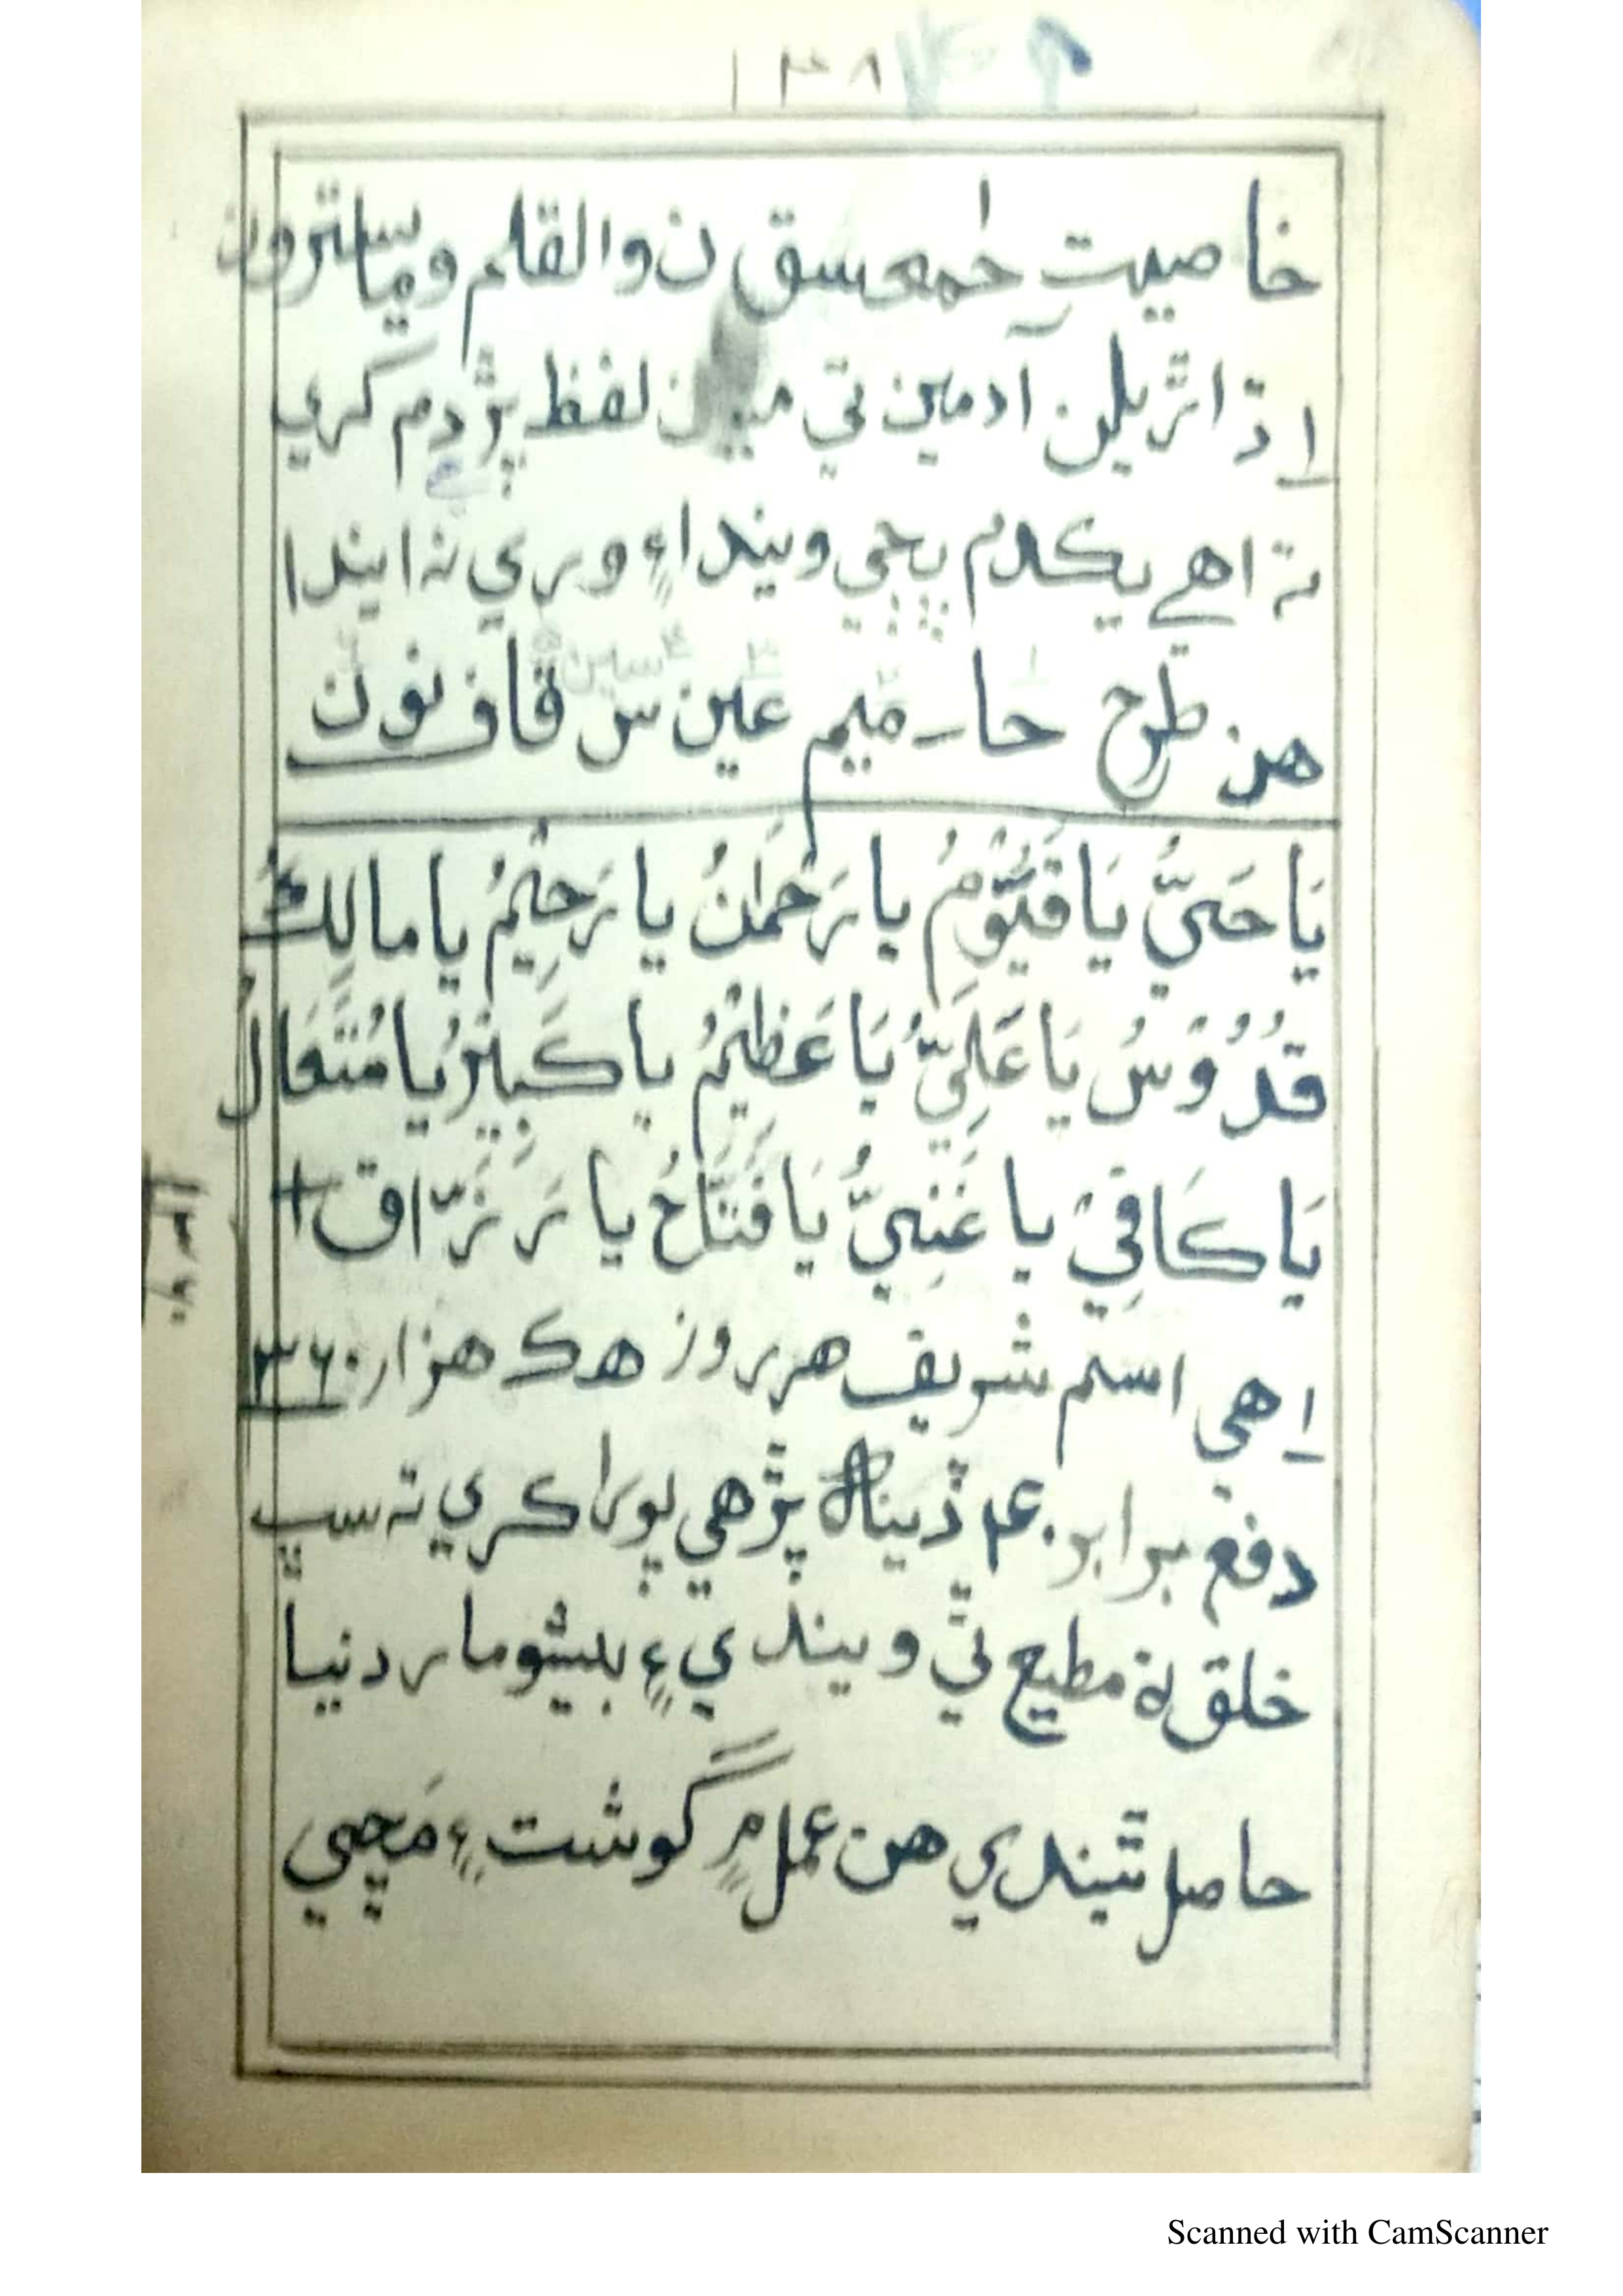 ١٣٨
خاصيت حٰمعسق ن والقلم وما يسترون
اڌ اڙيلن آدمين تي لفظ پڙ دم ڪري
تہ اهي يڪدم ڀڄي ويندا ۽ وري نہ ايندا
هن طرح حا ميم عين س قاف نون
سين
يَا حَيُّ يَا قَيُّوْمُ يا رَحْمٰنُ يا رَحِيْمُ يا مالِكُ
قُدُّوْسُ يَا عَلِيُّ يَا عَظِيْمُ يا ڪَبِيْرُ يا مُتَعَال
يَا ڪَافِيْ يا غَنِيُّ يَا فَتَّاحُ يا رَزَّاق +
اهي اسم شريف هر روز هڪ هزار ٣٦٠
دفع برابر ٤٠ ڏينھ پڙهي پورا ڪري تہ سڀ
خلق مطيع ٿي ويندي ۽ بيشومار دنيا
حاصل ٿيندي هن عمل ۾ گوشت ۽ مَڇي
Scanned with CamScanner